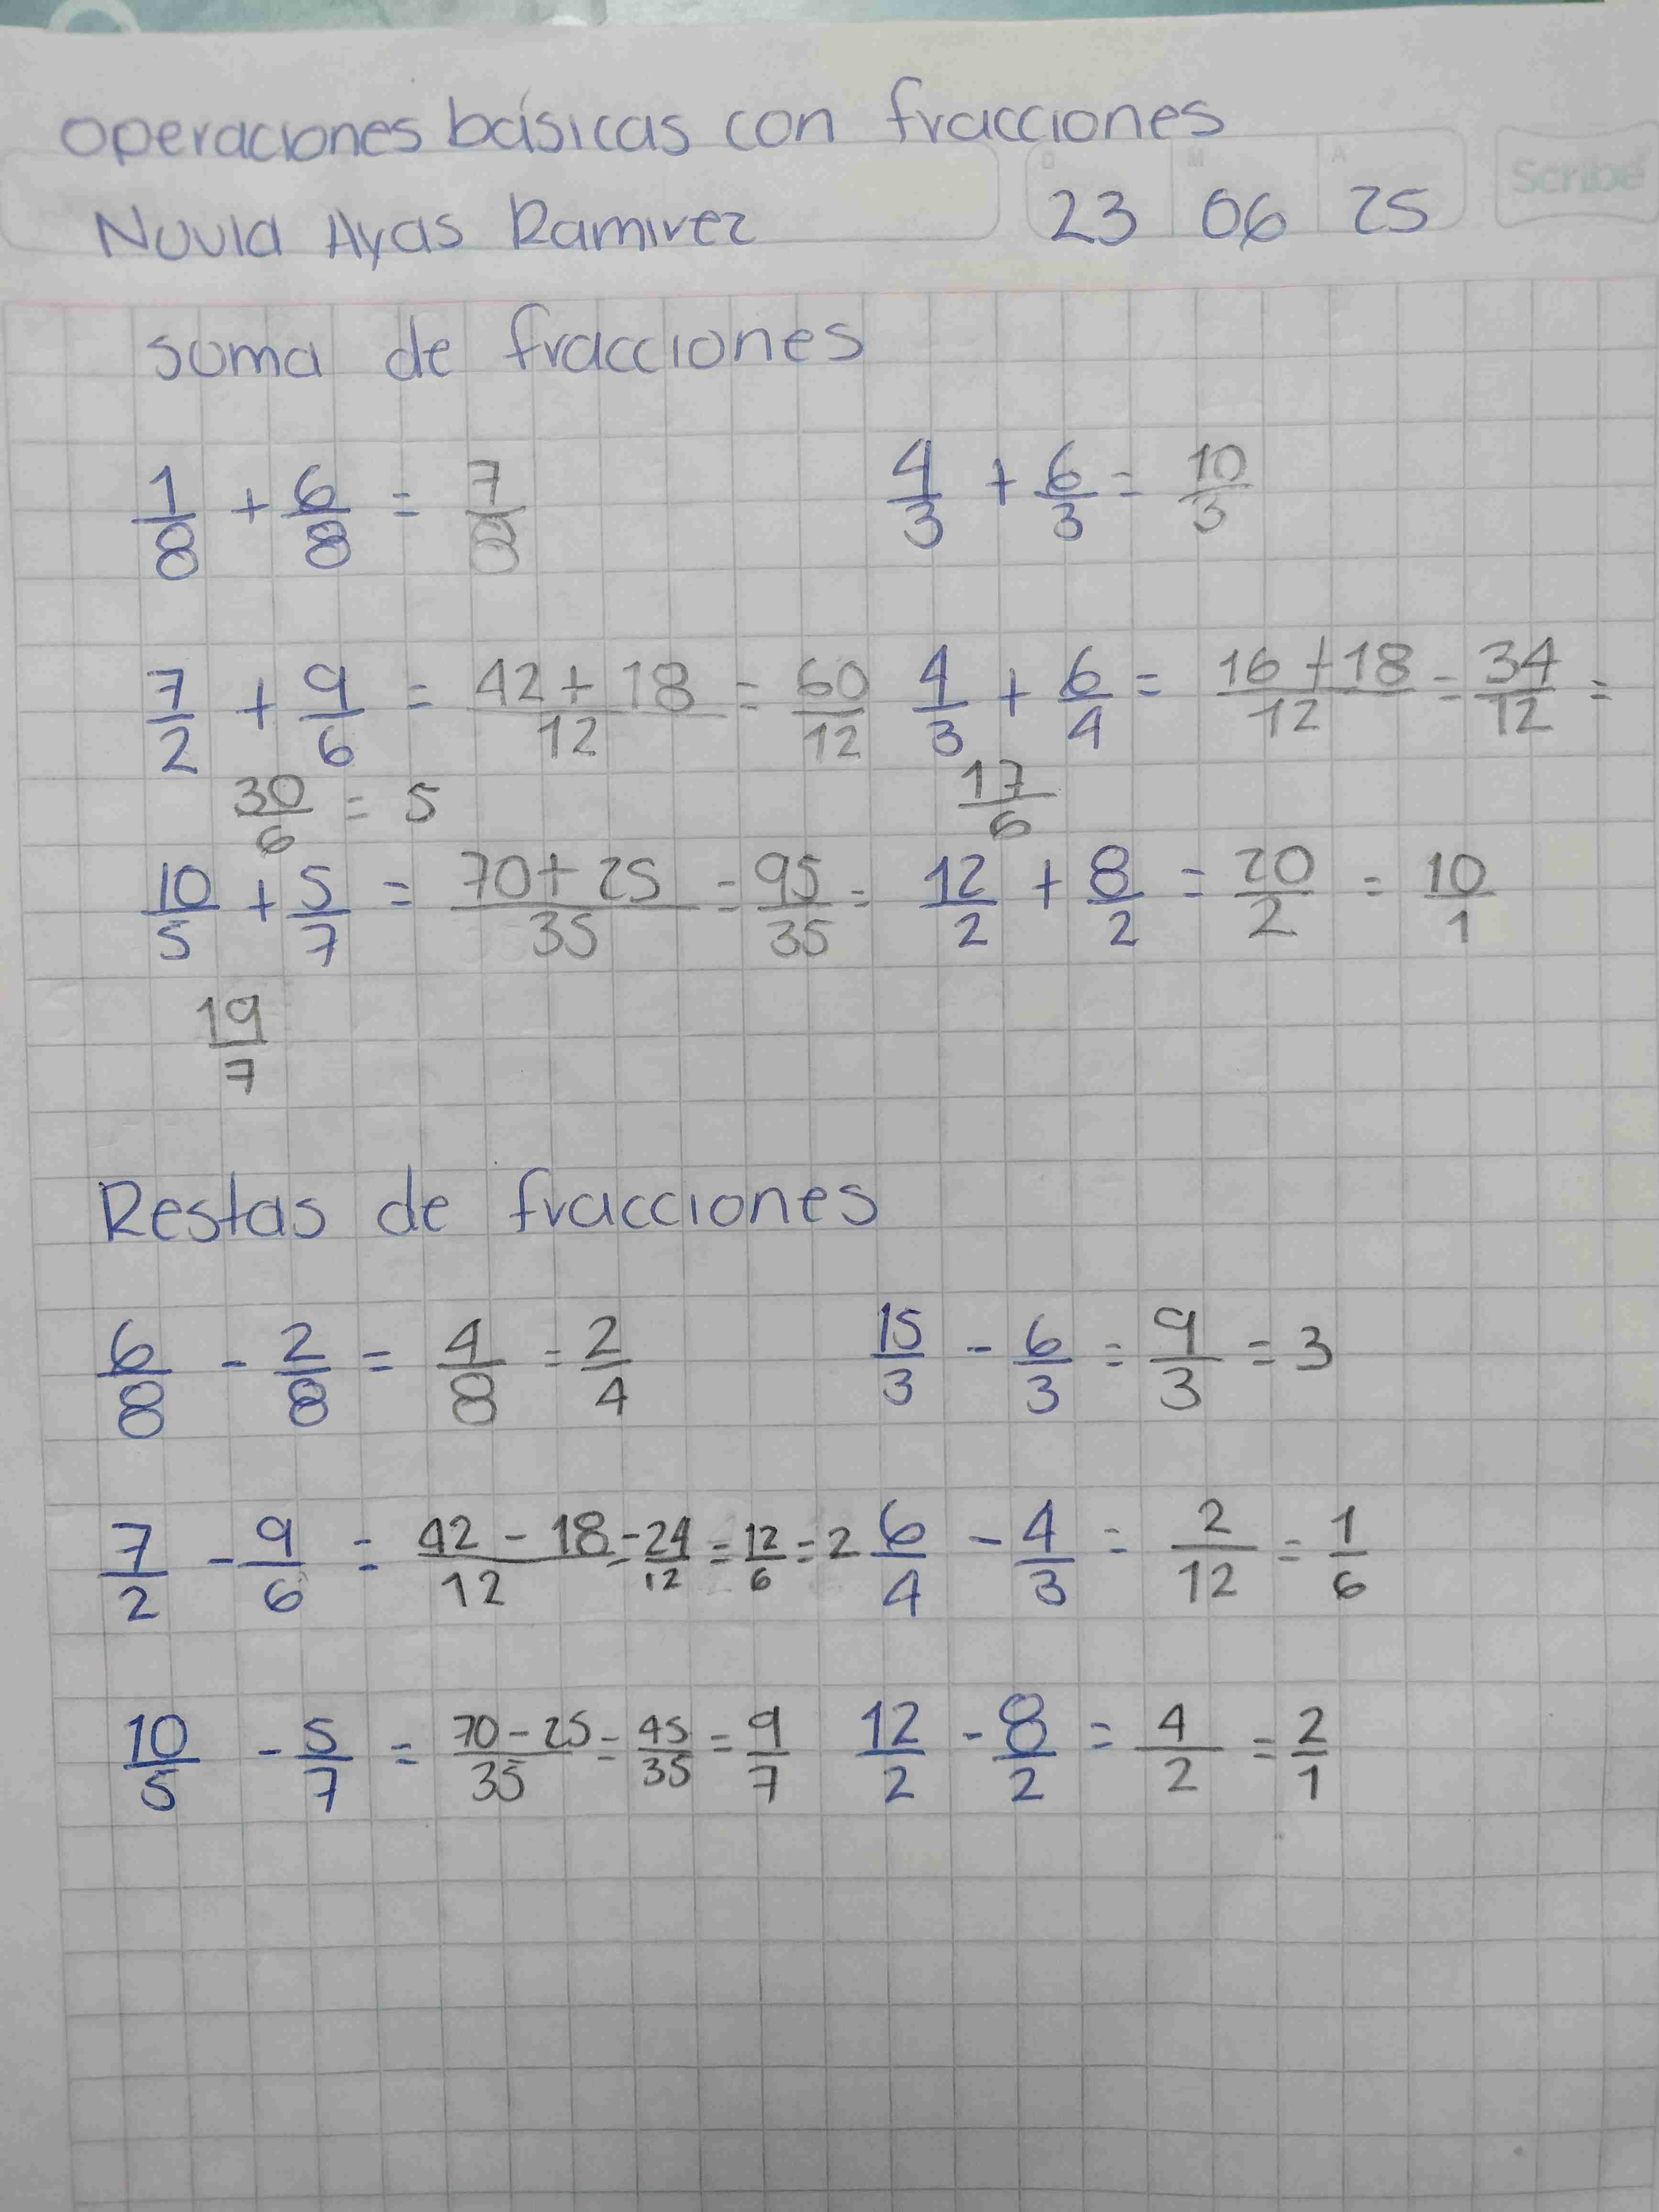 operaciones básicas con fracciones
D M A Scribe
Nuvia Ayas Ramirez 23 06 25
suma de fracciones
1/8 + 6/8 = 7/8 4/3 + 6/3 = 10/3
7/2 + 9/6 = 42+18/12 = 60/12 4/3 + 6/4 = 16+18/12 = 34/12 =
30/6 = 5 17/6
10/5 + 5/7 = 70+25/35 = 95/35 = 12/2 + 8/2 = 20/2 = 10/1
19/7
Restas de fracciones
6/8 - 2/8 = 4/8 = 2/4 15/3 - 6/3 = 9/3 = 3
7/2 - 9/6 = 42-18/12 = 24/12 = 12/6 = 2 6/4 - 4/3 = 2/12 = 1/6
10/5 - 5/7 = 70-25/35 = 45/35 = 9/7 12/2 - 8/2 = 4/2 = 2/1